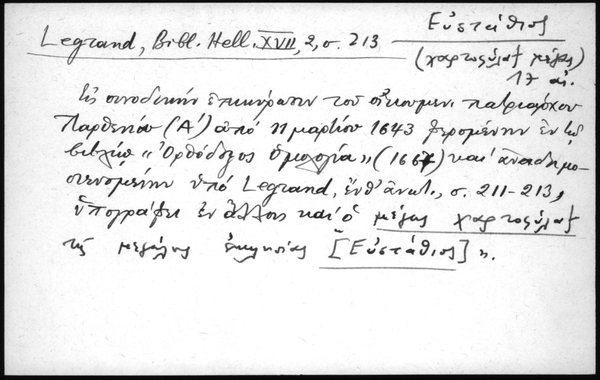 Εὐστάθιος
Legrand, Bibl. Hell. XVII, 2, σ. 213
(χαρτοφύλαξ μέγας)
17 αἰ.
Εἰς συνοδικὴν ἐπικύρωσιν τοῦ οἰκουμεν. πατριάρχου
Παρθενίου (Α΄) ἀπὸ 11 μαρτίου 1643 φερομένην ἐν τῷ
βιβλίῳ «Ὀρθόδοξος ὁμολογία» (1667) καὶ ἀναδημο-
σιευομένην ὑπὸ Legrand, ἔνθ' ἀνωτ., σ. 211-213,
ὑπογράφει ἐν ἄλλοις καὶ ὁ μέγας χαρτοφύλαξ
τῆς μεγάλης ἐκκλησίας [Εὐστάθιος] ».